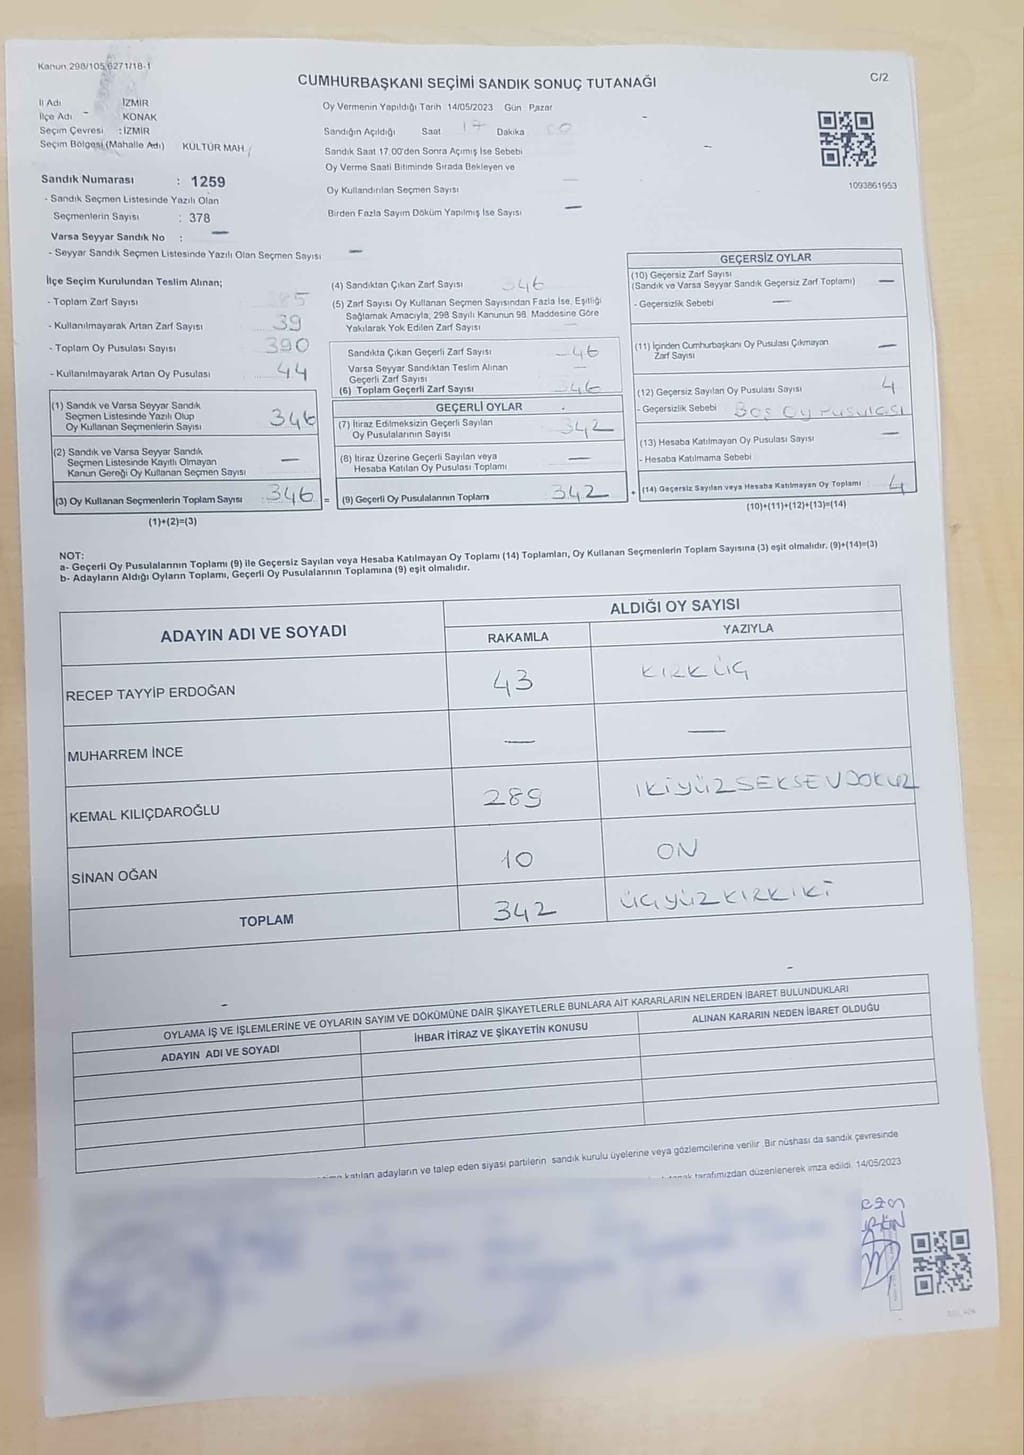 Kanun 298/105,6271/18-1
CUMHURBAŞKANI SEÇİMİ SANDIK SONUÇ TUTANAĞI
C/2
İl Adı İZMİR
İlçe Adı KONAK
Seçim Çevresi : İZMİR
Seçim Bölgesi (Mahalle Adı) KÜLTÜR MAH
Oy Vermenin Yapıldığı Tarih 14/05/2023 Gün Pazar
Sandığın Açıldığı Saat 17 Dakika
Sandık Saat 17:00'den Sonra Açımış İse Sebebi
Oy Verme Saati Bitiminde Sırada Bekleyen ve
Oy Kullandırılan Seçmen Sayısı
Birden Fazla Sayım Döküm Yapılmış İse Sayısı —
1093861953
Sandık Numarası : 1259
- Sandık Seçmen Listesinde Yazılı Olan
Seçmenlerin Sayısı : 378
Varsa Seyyar Sandık No : —
- Seyyar Sandık Seçmen Listesinde Yazılı Olan Seçmen Sayısı —
İlçe Seçim Kurulundan Teslim Alınan;
- Toplam Zarf Sayısı 85
- Kullanılmayarak Artan Zarf Sayısı 39
- Toplam Oy Pusulası Sayısı 390
- Kullanılmayarak Artan Oy Pusulası 44
(1) Sandık ve Varsa Seyyar Sandık
Seçmen Listesinde Yazılı Olup
Oy Kullanan Seçmenlerin Sayısı 346
(2) Sandık ve Varsa Seyyar Sandık
Seçmen Listesinde Kayıtlı Olmayan
Kanun Gereği Oy Kullanan Seçmen Sayısı —
(3) Oy Kullanan Seçmenlerin Toplam Sayısı 346 =
(1)+(2)=(3)
(4) Sandıktan Çıkan Zarf Sayısı 346
(5) Zarf Sayısı Oy Kullanan Seçmen Sayısından Fazla İse, Eşitliği
Sağlamak Amacıyla, 298 Sayılı Kanunun 98. Maddesine Göre
Yakılarak Yok Edilen Zarf Sayısı
Sandıkta Çıkan Geçerli Zarf Sayısı 46
Varsa Seyyar Sandıktan Teslim Alınan
Geçerli Zarf Sayısı
(6) Toplam Geçerli Zarf Sayısı 346
GEÇERLİ OYLAR
(7) İtiraz Edilmeksizin Geçerli Sayılan
Oy Pusulalarının Sayısı 342
(8) İtiraz Üzerine Geçerli Sayılan veya
Hesaba Katılan Oy Pusulası Toplamı —
(9) Geçerli Oy Pusulalarının Toplamı 342 +
GEÇERSİZ OYLAR
(10) Geçersiz Zarf Sayısı
(Sandık ve Varsa Seyyar Sandık Geçersiz Zarf Toplamı) —
- Geçersizlik Sebebi —
(11) İçinden Cumhurbaşkanı Oy Pusulası Çıkmayan
Zarf Sayısı —
(12) Geçersiz Sayılan Oy Pusulası Sayısı 4
- Geçersizlik Sebebi Boş Oy Pusulası
(13) Hesaba Katılmayan Oy Pusulası Sayısı —
- Hesaba Katılmama Sebebi
(14) Geçersiz Sayılan veya Hesaba Katılmayan Oy Toplamı : 4
(10)+(11)+(12)+(13)=(14)
NOT:
a- Geçerli Oy Pusulalarının Toplamı (9) ile Geçersiz Sayılan veya Hesaba Katılmayan Oy Toplamı (14) Toplamları, Oy Kullanan Seçmenlerin Toplam Sayısına (3) eşit olmalıdır. (9)+(14)=(3)
b- Adayların Aldığı Oyların Toplamı, Geçerli Oy Pusulalarının Toplamına (9) eşit olmalıdır.
ADAYIN ADI VE SOYADI
ALDIĞI OY SAYISI
RAKAMLA YAZIYLA
RECEP TAYYİP ERDOĞAN 43 KIRKÜÇ
MUHARREM İNCE — —
KEMAL KILIÇDAROĞLU 289 İKİYÜZSEKSENDOKUZ
SİNAN OĞAN 10 ON
TOPLAM 342 ÜÇYÜZKIRKİKİ
OYLAMA İŞ VE İŞLEMLERİNE VE OYLARIN SAYIM VE DÖKÜMÜNE DAİR ŞİKAYETLERLE BUNLARA AİT KARARLARIN NELERDEN İBARET BULUNDUKLARI
ADAYIN ADI VE SOYADI İHBAR İTİRAZ VE ŞİKAYETİN KONUSU ALINAN KARARIN NEDEN İBARET OLDUĞU
katılan adayların ve talep eden siyasi partilerin sandık kurulu üyelerine veya gözlemcilerine verilir. Bir nüshası da sandık çevresinde
tarafımızdan düzenlenerek imza edildi. 14/05/2023